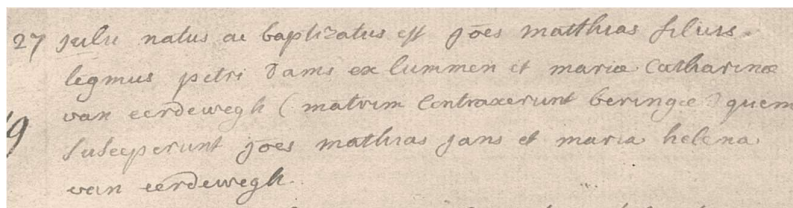 27 julii natus ac baptizatus est Joes matthias filius
legmus petri Dams ex lummen et mariæ Catharinæ
van eerdewegh (matrim Contraxerunt beringæ) quem
susceperunt joes mathias jans et maria helena
van eerdewegh.